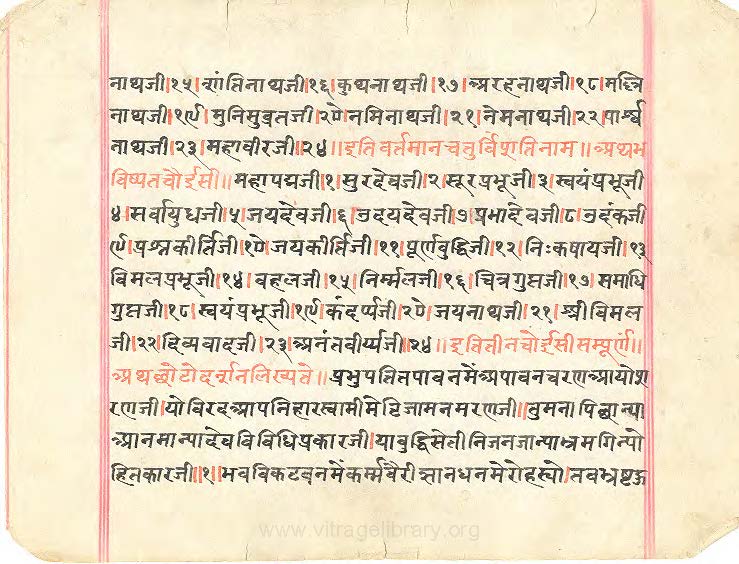 नाथजी।१५।शांतिनाथजी।१६।कुथनाथजी।१७।अरहनाथजी।१८।मल्लि
नाथजी।१९।मुनिसुव्रतजी।२०।नमिनाथजी।२१।नेमनाथजी।२२।पार्श्व
नाथजी।२३।महावीरजी।२४॥इतिवर्तमानचतुर्विंशतिनाम॥अथभ
विष्यतचौईसी॥महापद्मजी।१।सुरदेवजी।२।सूरप्रभूजी।३।स्वयंप्रभूजी
४।सर्वायुधजी।५।जयदेवजी।६।उदयदेवजी।७।प्रभादेवजी।८।उदंकजी
।९।प्रश्नकीर्तिजी।१०।जयकीर्तिजी।११।पूर्णवुद्धिजी।१२।निःकषायजी।१३
विमलप्रभूजी।१४।वहलजी।१५।निर्म्मलजी।१६।चित्रगुप्तजी।१७।समाधि
गुप्तजी।१८।स्वयंप्रभूजी।१९।कंदर्प्पजी।२०।जयनाथजी।२१।श्रीविमल
जी।२२।दिव्यवादजी।२३।अनंतवीर्य्यजी।२४॥इतितीनचौईसीसम्पूर्णं॥
अथछोटोदर्शनलिख्यते॥प्रभुपतितपावनमेंअपावनचरनआयोश
रणजी।योविरदआपनिहारस्वामीमेटिजामनमरणजी॥तुमनापिछान्या
आनमान्यादेवविविधिप्रकारजी।यावुद्धिसेतीनिजनजान्याभ्रमगिन्यो
हितकारजी॥१॥भवविकटवनमेंकर्म्मवैरीज्ञानधनमेरोहरयो।तवभ्रष्ट
www.vitragelibrary.org